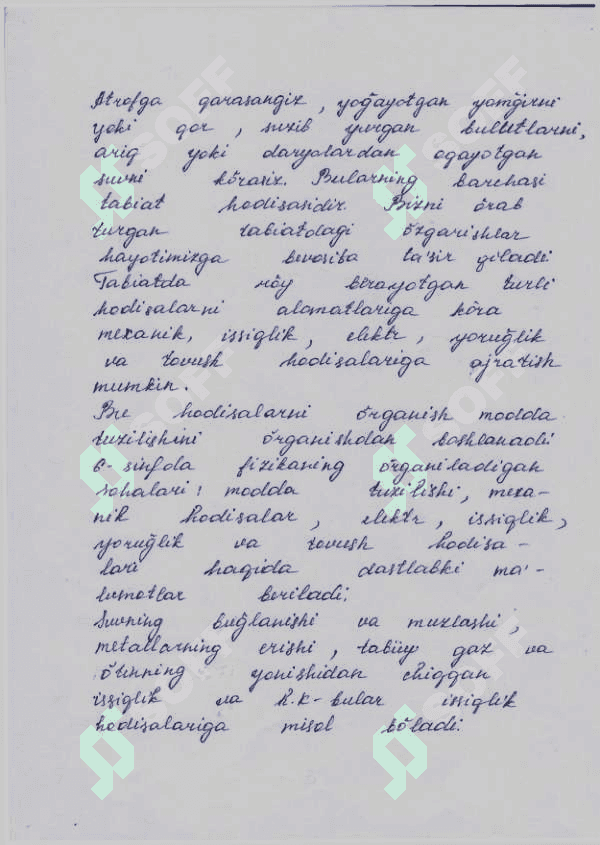 Atrofga qarasangiz, yoğayotgan yomğirni
yoki qor, suzib yurgan bulutlarni,
ariq yoki daryolardan oqayotgan
suvni kõrasiz. Bularning barchasi
tabiat hodisasidir. Bizni õrab
turgan tabiatdagi õzgarishlar
hayotimizga bevosita ta'sir qiladi
Tabiatda rõy berayotgan turli
hodisalarni alomatlariga kõra
mexanik, issiqlik, elektr, yoruğlik
va tovush hodisalariga ajratish
mumkin.
Bu hodisalarni õrganish modda
tuzilishini õrganishdan boshlanadi.
6-sinfda fizikaning õrganiladigan
sohalari: modda tuzilishi, mexa-
nik hodisalar, elektr, issiqlik,
yoruğlik va tovush hodisa-
lari haqida dastlabki ma'-
lumotlar beriladi.
Suvning buğlanishi va muzlashi,
metallarning erishi, tabiiy gaz va
õtinning yonishidan chiqqan
issiqlik va h.k-bular issiqlik
hodisalariga misol bõladi.
SOFF
SOFF
SOFF
SOFF
SOFF
SOFF